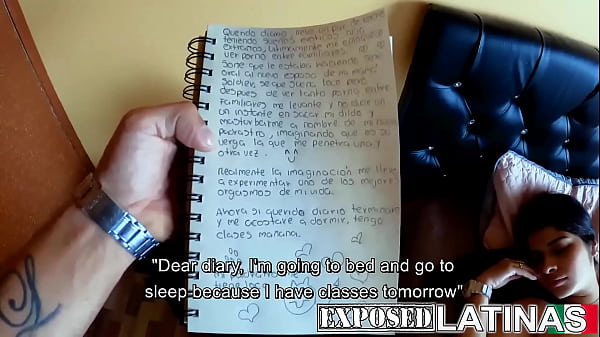 Querido diario, llevo un par de noches
teniendo sueños eroticos muy
extraños, ultimamente me
ver porno entre familiares.
Soñe que le estaba haciendo sexo
oral al nuevo esposo de mi mamá
se que suena loco pero
despues de ver tanto porno entre
Familiares me levante y no dude ni
un instante en sacar mi dildo y
masturbarme a nombre de mi
padrastro, imaginando que es su
verga la que me penetra una y
otra vez.
Realmente la imaginación me llevo
a experimentar uno de los mejores
orgasmos de mi vida.
Ahora si querido diario terminare
y me acostare a dormir, tengo
clases mañana.
"Dear diary, I'm going to bed and go to
sleep because I have classes tomorrow"
EXPOSED LATINAS